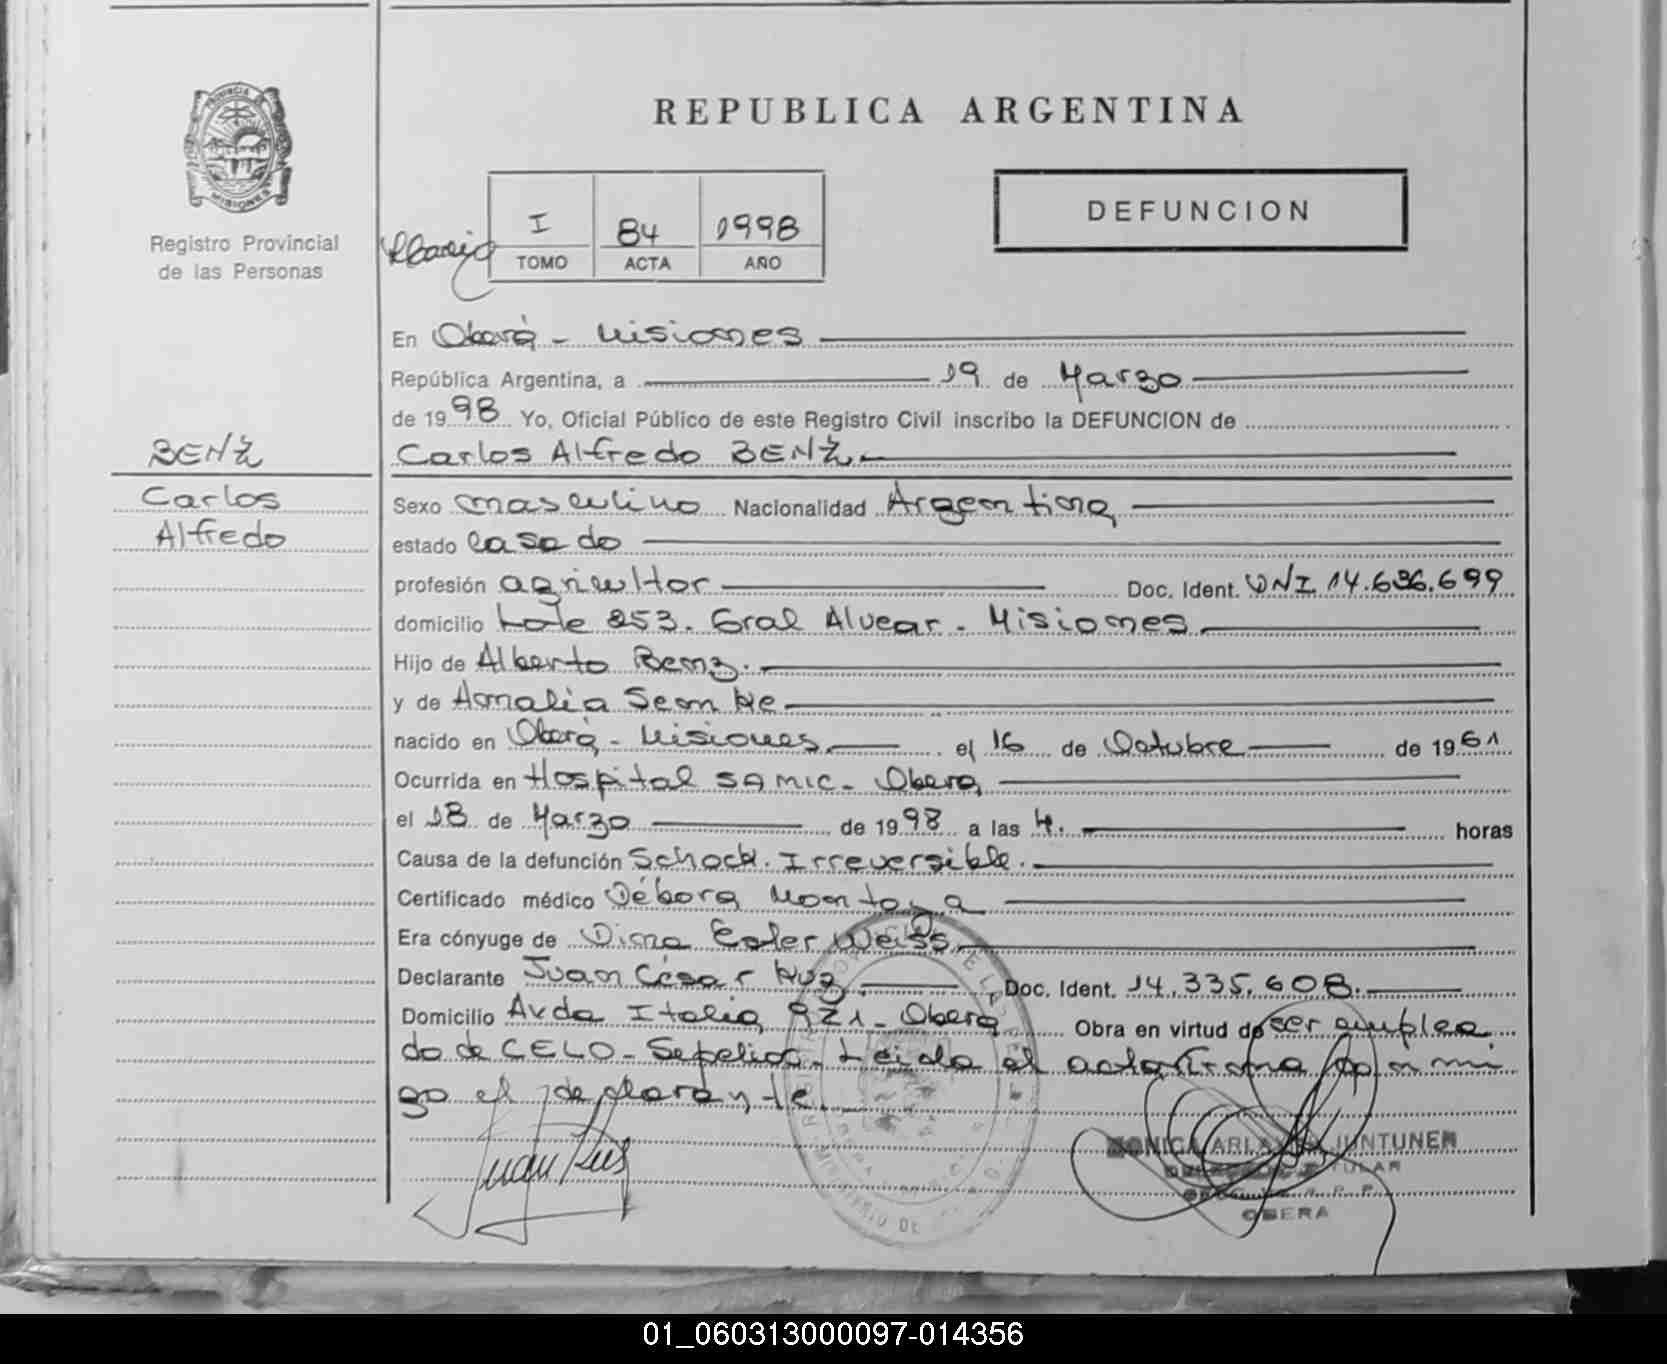 PROVINCIA DE
MISIONES
Registro Provincial
de las Personas
REPUBLICA ARGENTINA
I 84 1998
TOMO ACTA AÑO
DEFUNCION
En Oberá - Misiones
República Argentina, a 19 de Marzo
de 1998 Yo, Oficial Público de este Registro Civil inscribo la DEFUNCION de
BENZ
Carlos Alfredo BENZ.
Carlos
Alfredo
Sexo masculino Nacionalidad Argentina
estado casado
profesión agricultor Doc. Ident. DNI 14.636.699
domicilio Lote 253. Gral Alvear - Misiones
Hijo de Alberto Benz.
y de Amalia
nacido en Oberá - Misiones el 16 de Octubre de 1961
Ocurrida en Hospital SAMIC - Obera
el 18 de Marzo de 1998 a las 4. horas
Causa de la defunción Schock Irreversible.
Certificado médico Débora Montoya
Era cónyuge de Ester Weiss
Declarante Juan César Doc. Ident. 14.335.608.
Domicilio Avda Italia 921 - Obera Obra en virtud de ser emplea
do de CELO - Sepelios - Leida el acta firma conmi
go el declarante.
MONICA JUNTUNEN
TITULAR
OBERA
01_060313000097-014356